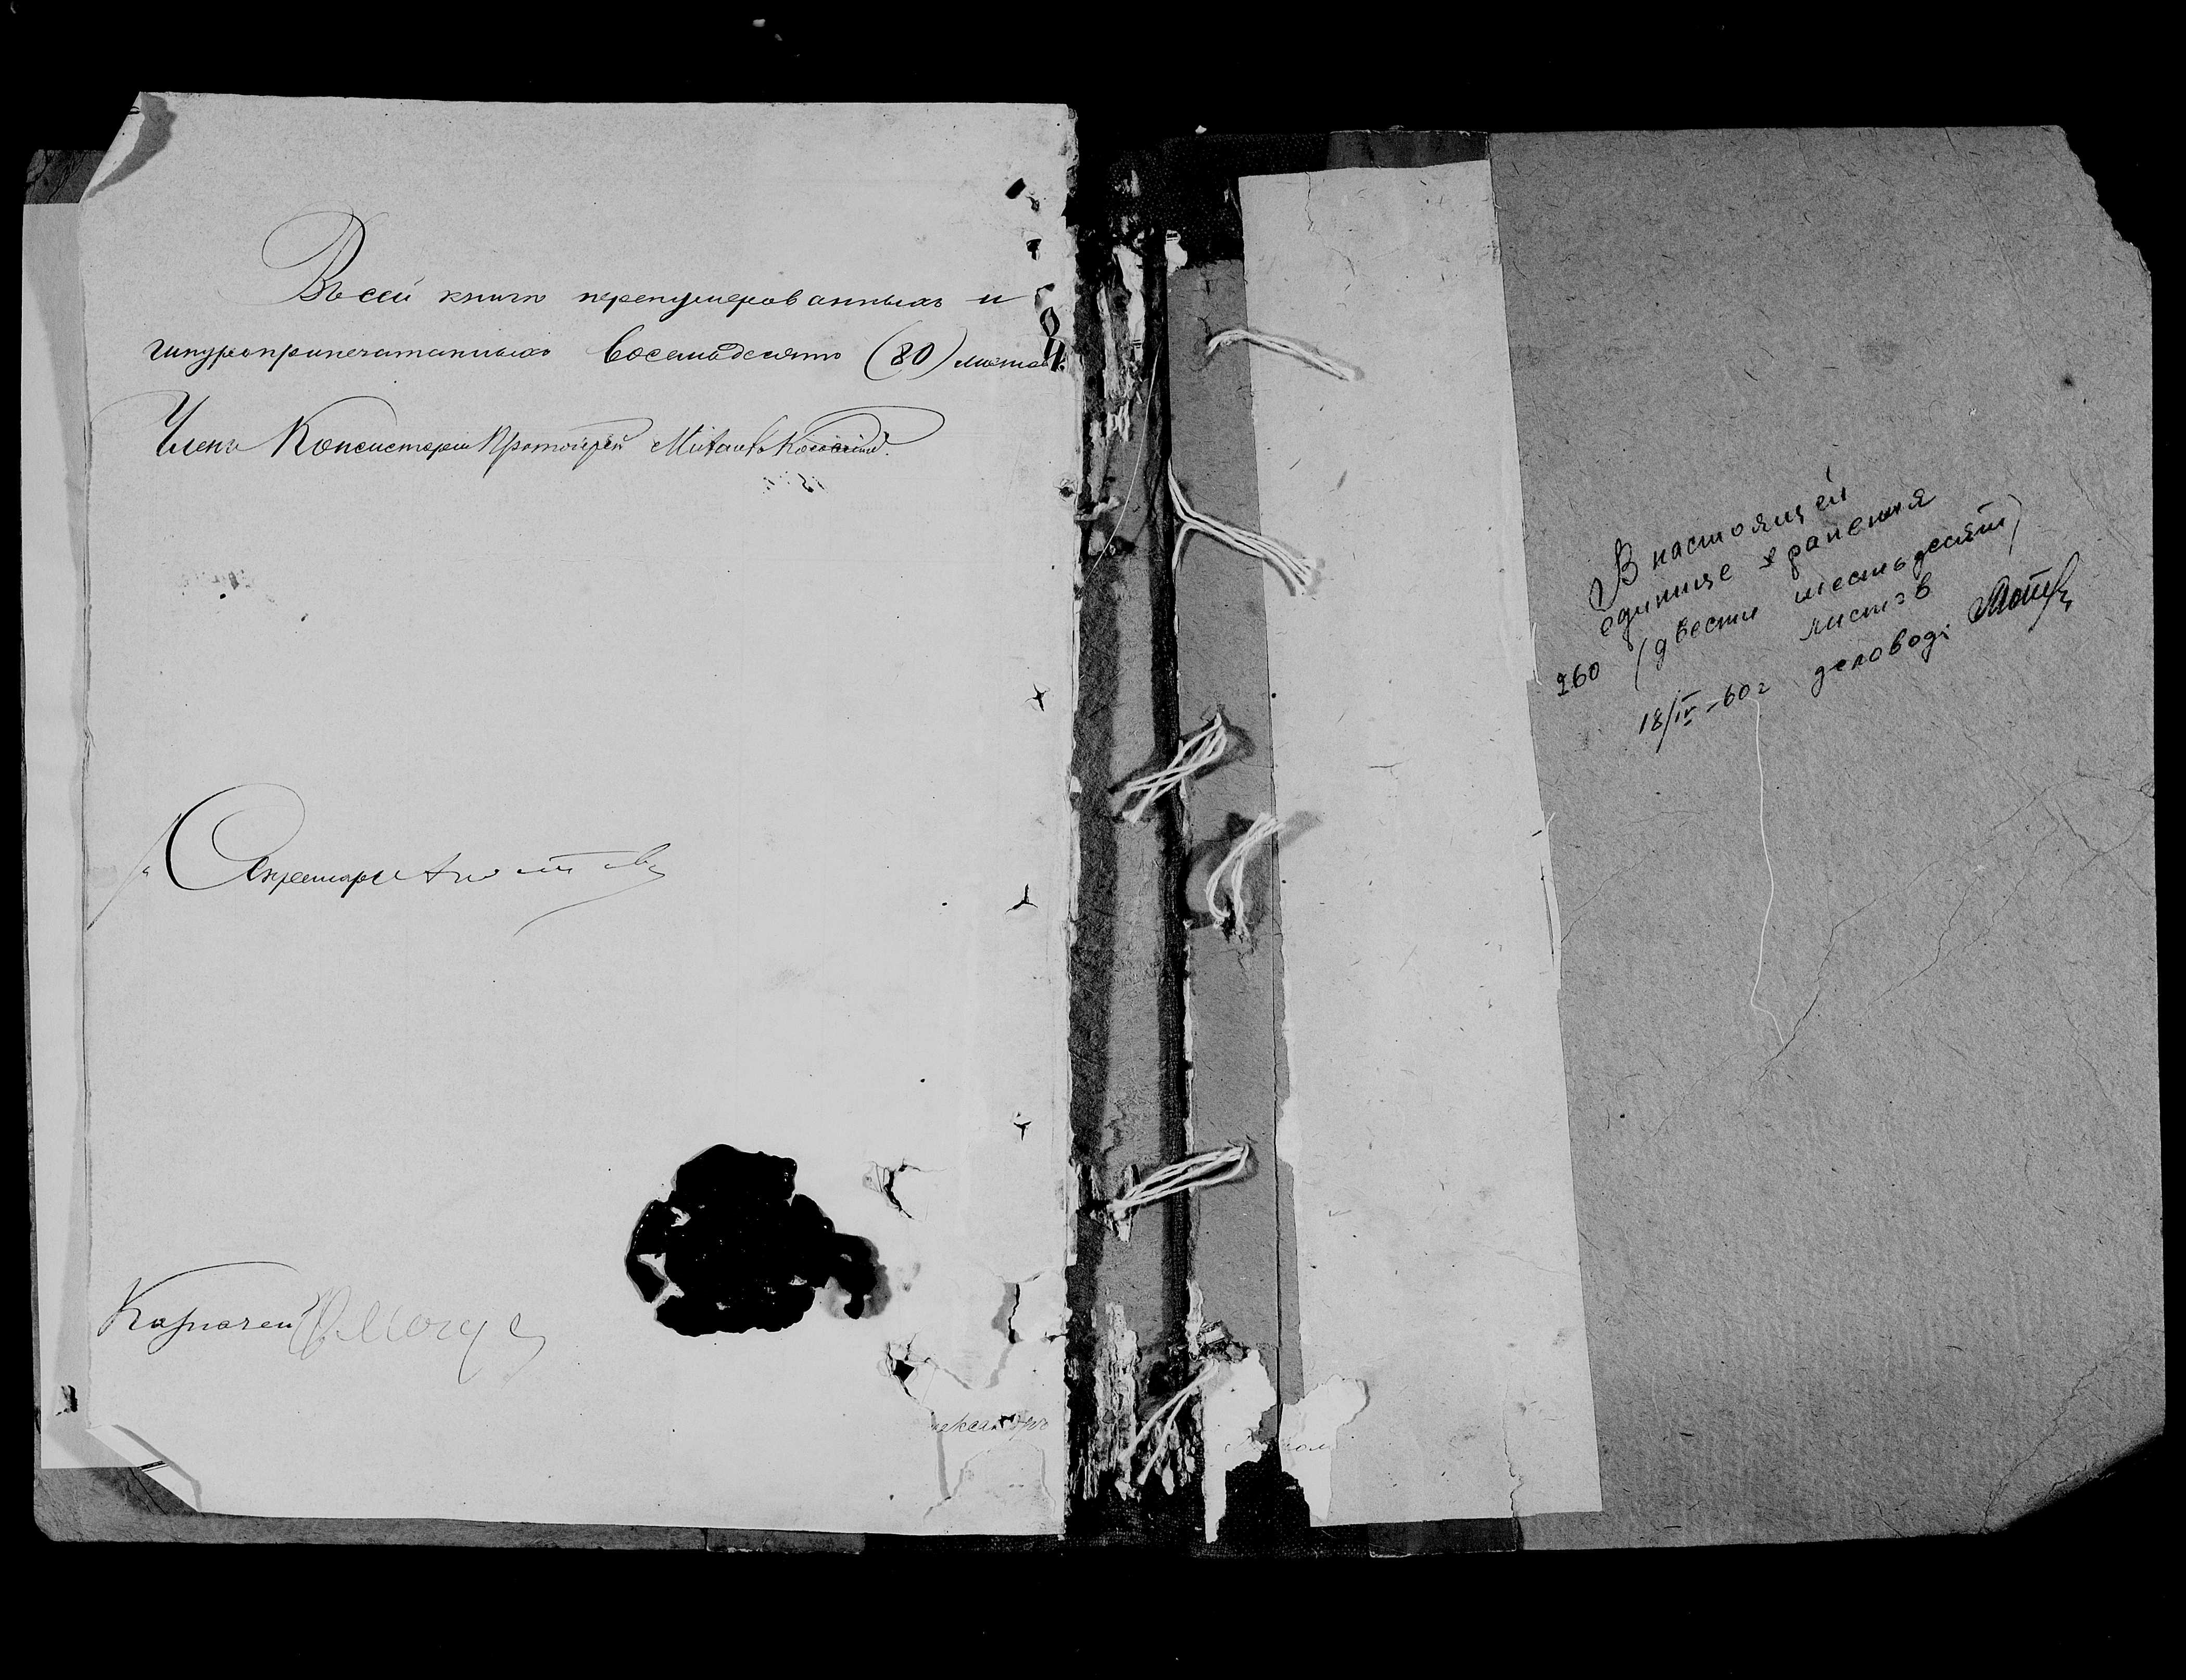 Въ сей книгѣ перенумерованныхъ и
шнуроприпечатанныхъ восемьдесятъ (80) листовъ.
Членъ Консисторіи Протоіерей Михаилъ
Секретарь
Казначей
В настоящей
единице хранения
260 (двести шестьдесят)
листов
18/IV-60г деловод: